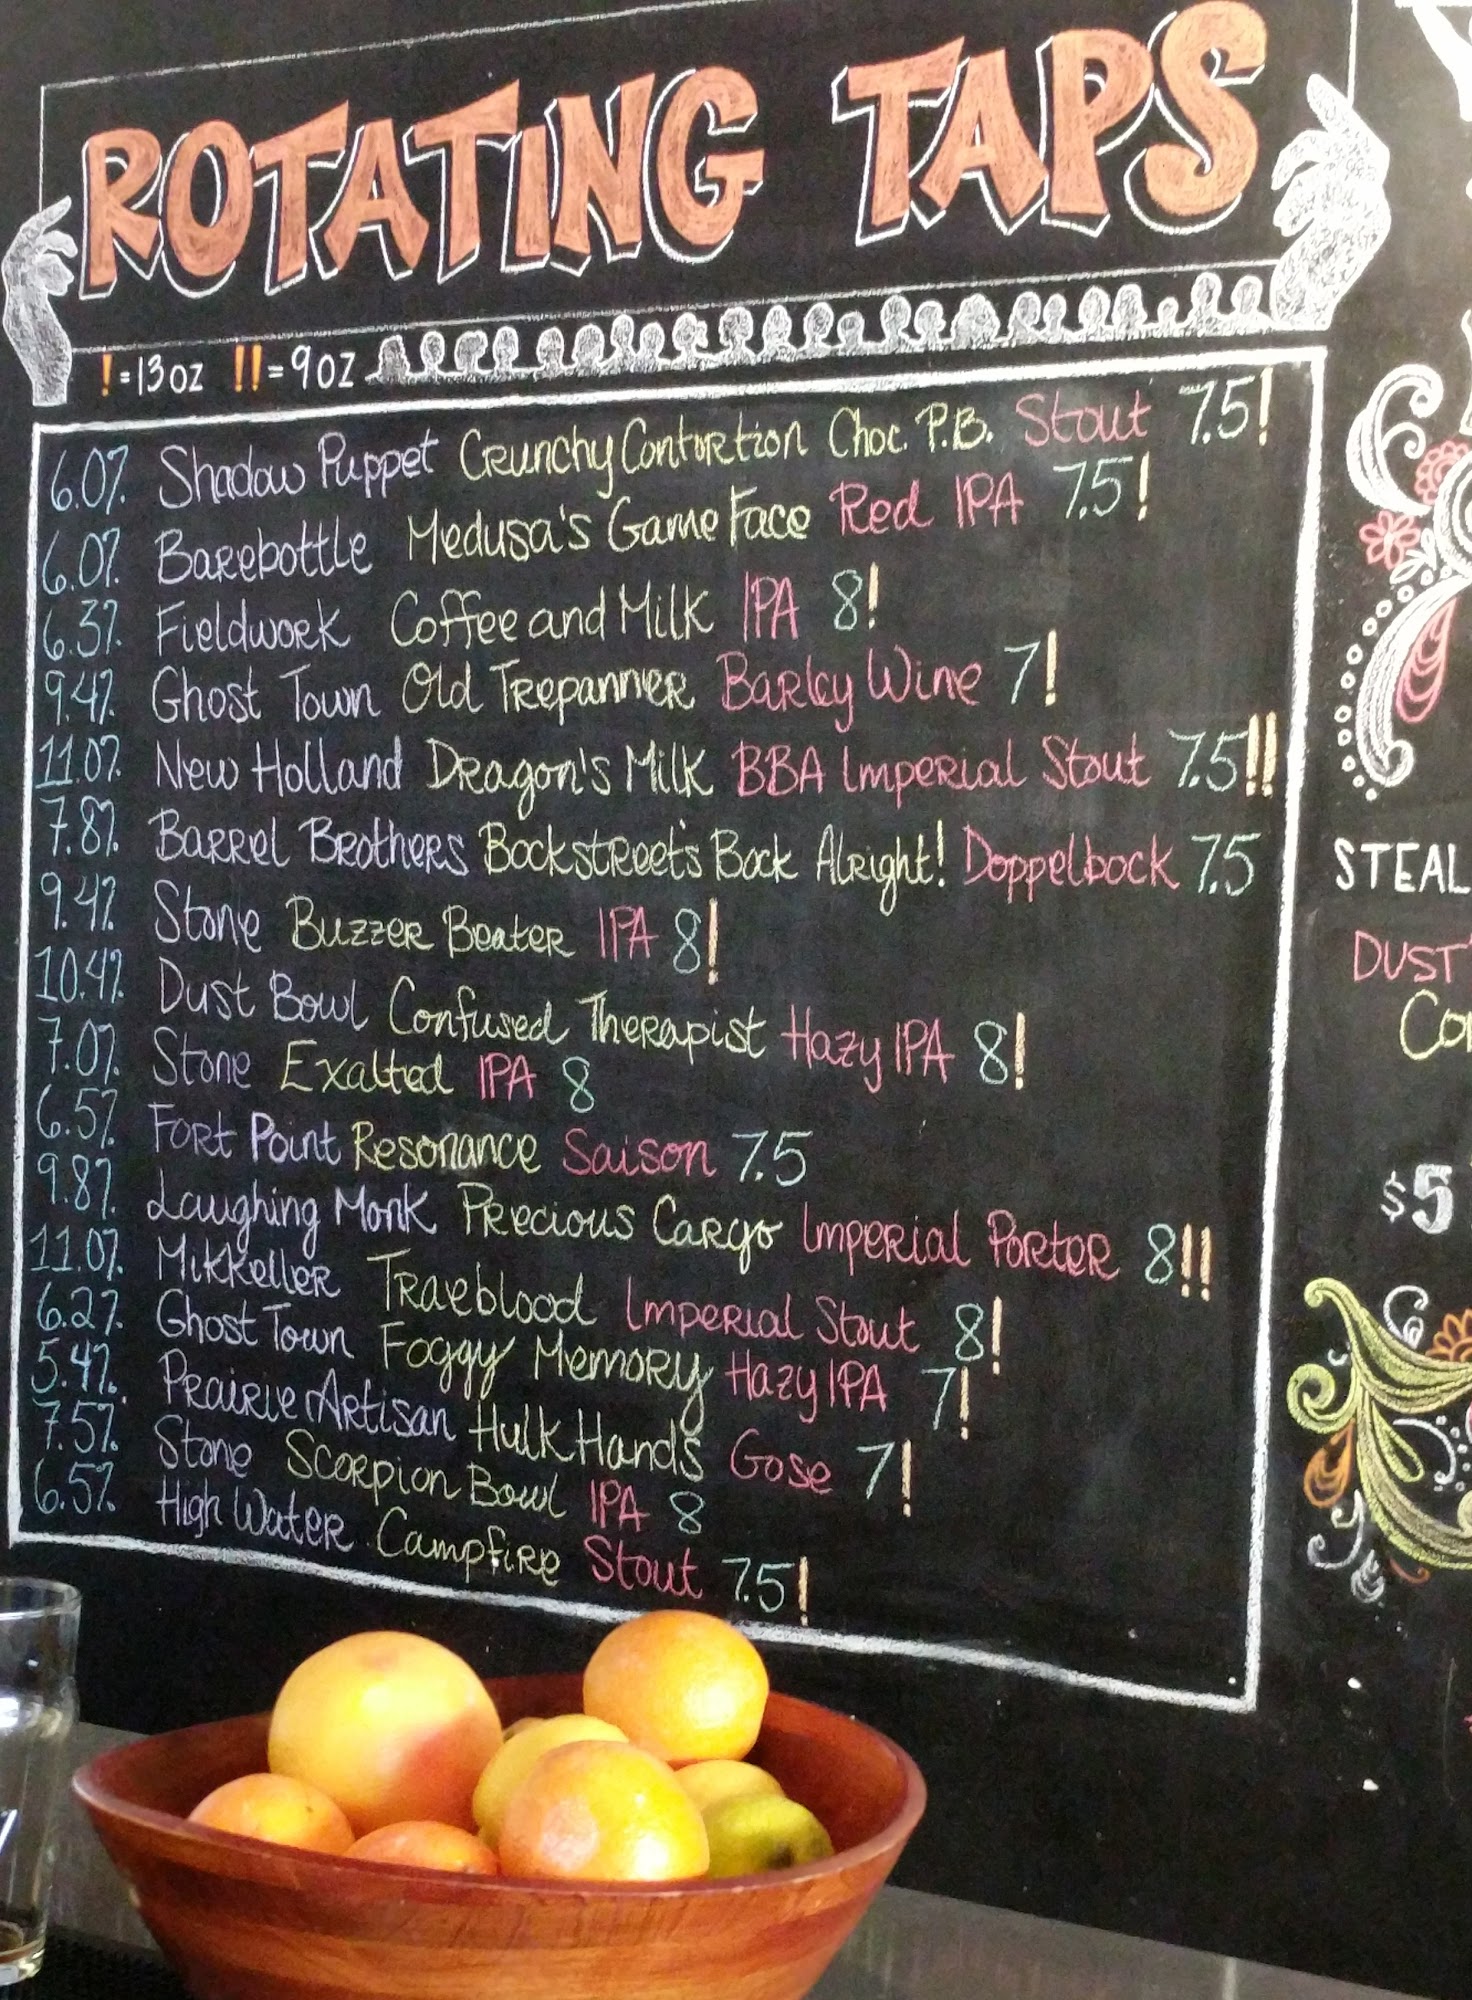 ROTATING TAPS
!=13oz !!=9oz
6.0% Shadow Puppet Crunchy Contortion Choc. P.B. Stout 7.5!
6.0% Barebottle Medusa's Game Face Red IPA 7.5!
6.3% Fieldwork Coffee and Milk IPA 8!
9.4% Ghost Town Old Trepanner Barley Wine 7!
11.0% New Holland Dragon's Milk BBA Imperial Stout 7.5!!
7.8% Barrel Brothers Bockstreet's Bock Alright! Doppelbock 7.5
9.4% Stone Buzzer Beater IPA 8!
10.4% Dust Bowl Confused Therapist Hazy IPA 8!
7.0% Stone Exalted IPA 8
6.5% Fort Point Resonance Saison 7.5
9.8% Laughing Monk Precious Cargo Imperial Porter 8!!
11.0% Mikkeller Traeblood Imperial Stout 8!
6.2% Ghost Town Foggy Memory Hazy IPA 7!
5.4% Prairie Artisan Hulk Hands Gose 7!
7.5% Stone Scorpion Bowl IPA 8
6.5% High Water Campfire Stout 7.5!
STEAL
DUST
Co
$5